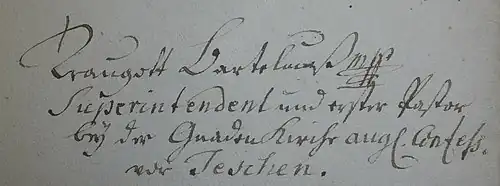 Traugott Bartelmuß mpp
Superintendent und erster Pastor
bey der Gnaden Kirche augl. Confess.
vor Teschen.